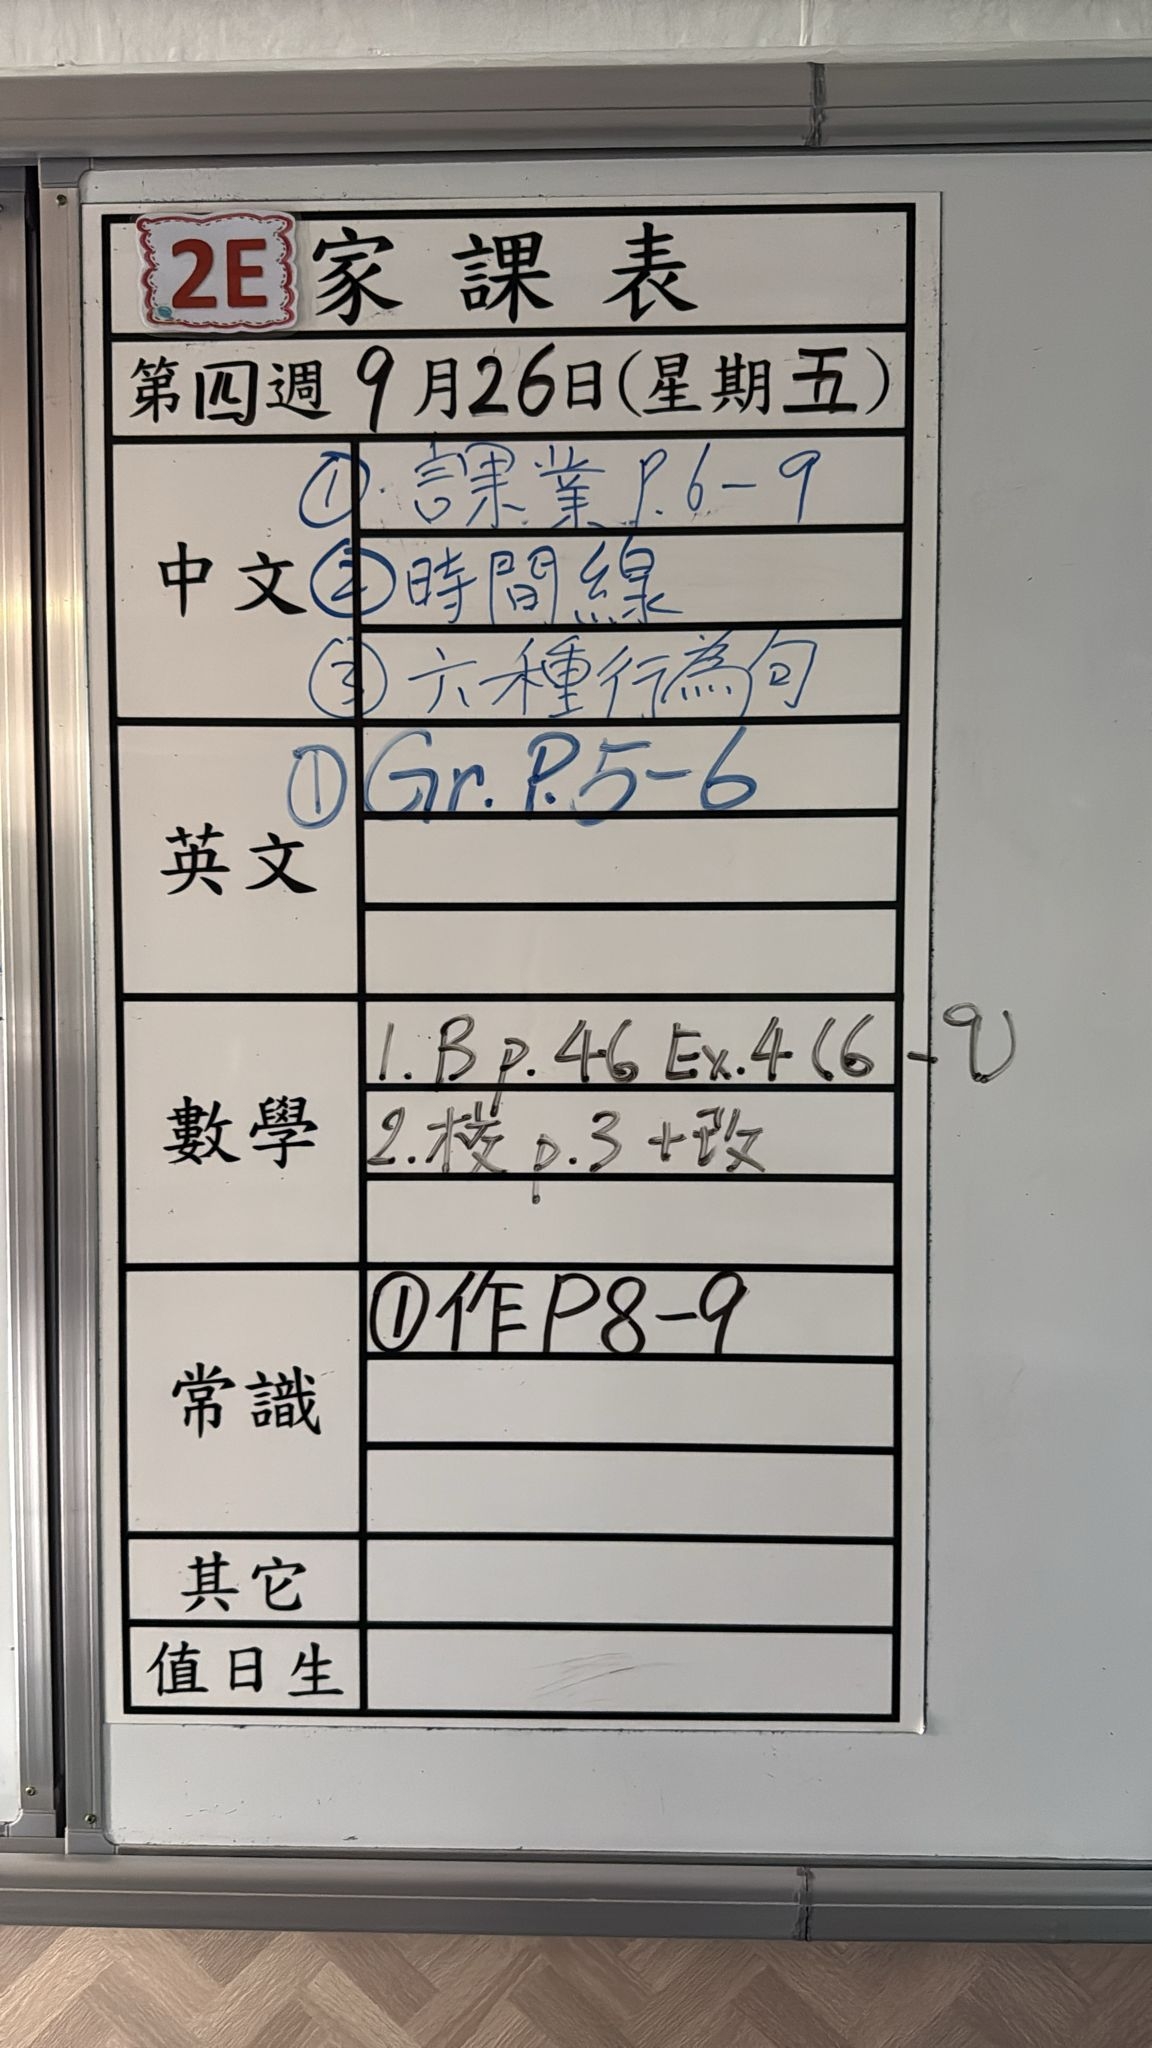 2E 家課表
第四週 9月26日(星期五)
中文
① 課業 P.6-9
② 時間線
③ 六種行為句
英文
① Gr. P.5-6
數學
1. B p.46 Ex.4 (6-9)
2. p.3 +改
常識
① 作 P8-9
其它
值日生